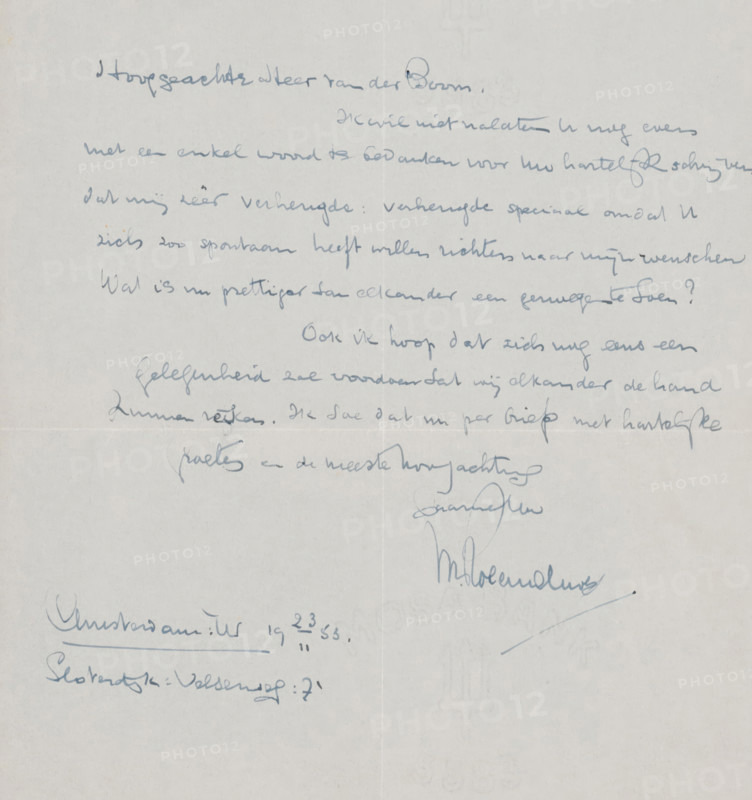 Hooggeachte Heer van der Boom.
Ik wil niet nalaten U nog evens
met een enkel woord te bedanken voor Uw hartelijk schrijven
dat mij zéér verheugde: verheugde speciaal omdat U
zich zoo spontaan heeft willen richten naar mijn wenschen
Wat is nu prettiger dan elkander een genoegen te doen?
Ook ik hoop dat zich nog eens een
gelegenheid zal voordoen dat wij elkander de hand
kunnen reiken. Ik doe dat nu per brief met hartelijke
groeten en de meeste hoogachting
Gaarne Uw
Amsterdam: W 19 23/11 53.
Sloterdijk: Velserweg: 7'
PHOTO12